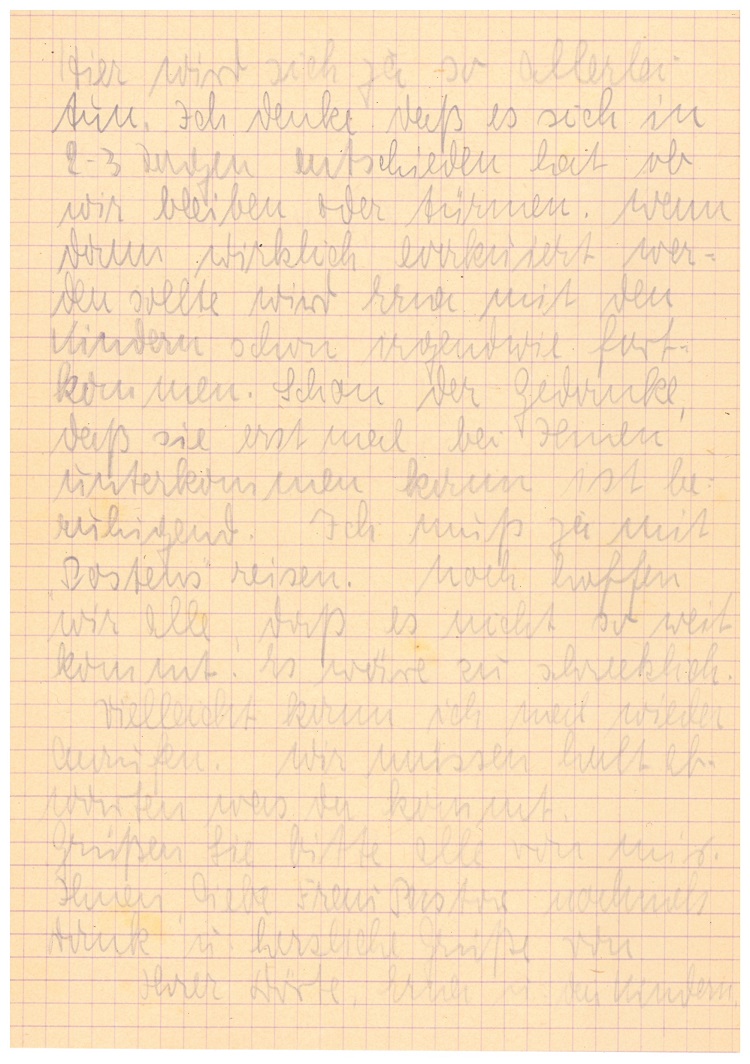 Hier wird sich ja so allerlei
tun. Ich denke daß es sich in
2-3 Tagen entschieden hat ob
wir bleiben oder türmen. Wenn
dann wirklich evakuiert wer=
den sollte wird Erna mit den
Kindern schon irgendwie fort-
kommen. Schon der Gedanke,
daß sie erst mal bei Ihnen
unterkommen kann ist be-
ruhigend. Ich muß ja mit
Pastehs reisen. Noch hoffen
wir alle daß es nicht so weit
kommt. Es wäre zu schrecklich.
Vielleicht kann ich mal wieder
anrufen. Wir müssen halt ab-
warten was da kommt.
Grüßen Sie bitte alle von mir.
Ihnen liebe Frau Pastor nochmals
Dank u. herzliche Grüße von
Ihrer Dörte, Erna u.